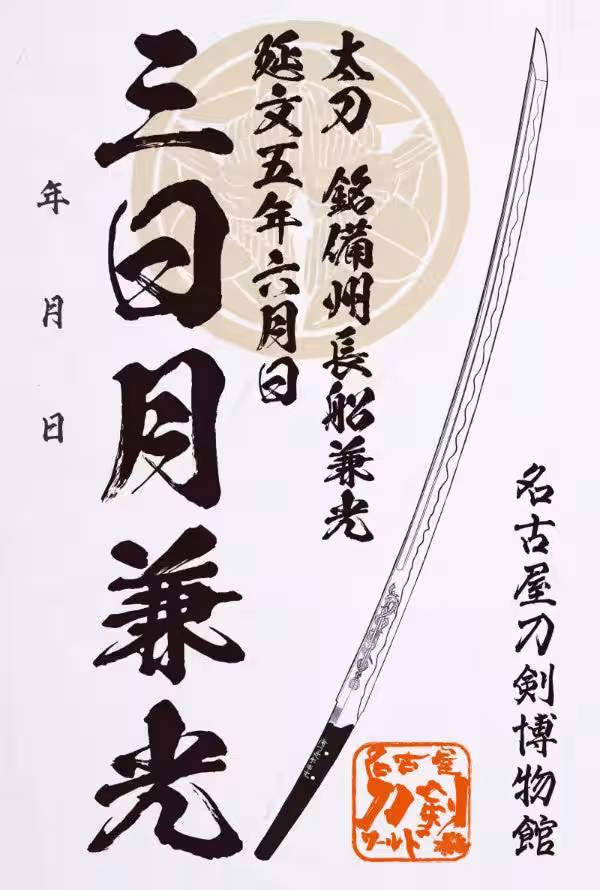 名古屋刀剣博物館
太刀 銘備州長船兼光
延文五年六月日
三日月兼光
年 月 日
名古屋
刀剣
ワールド